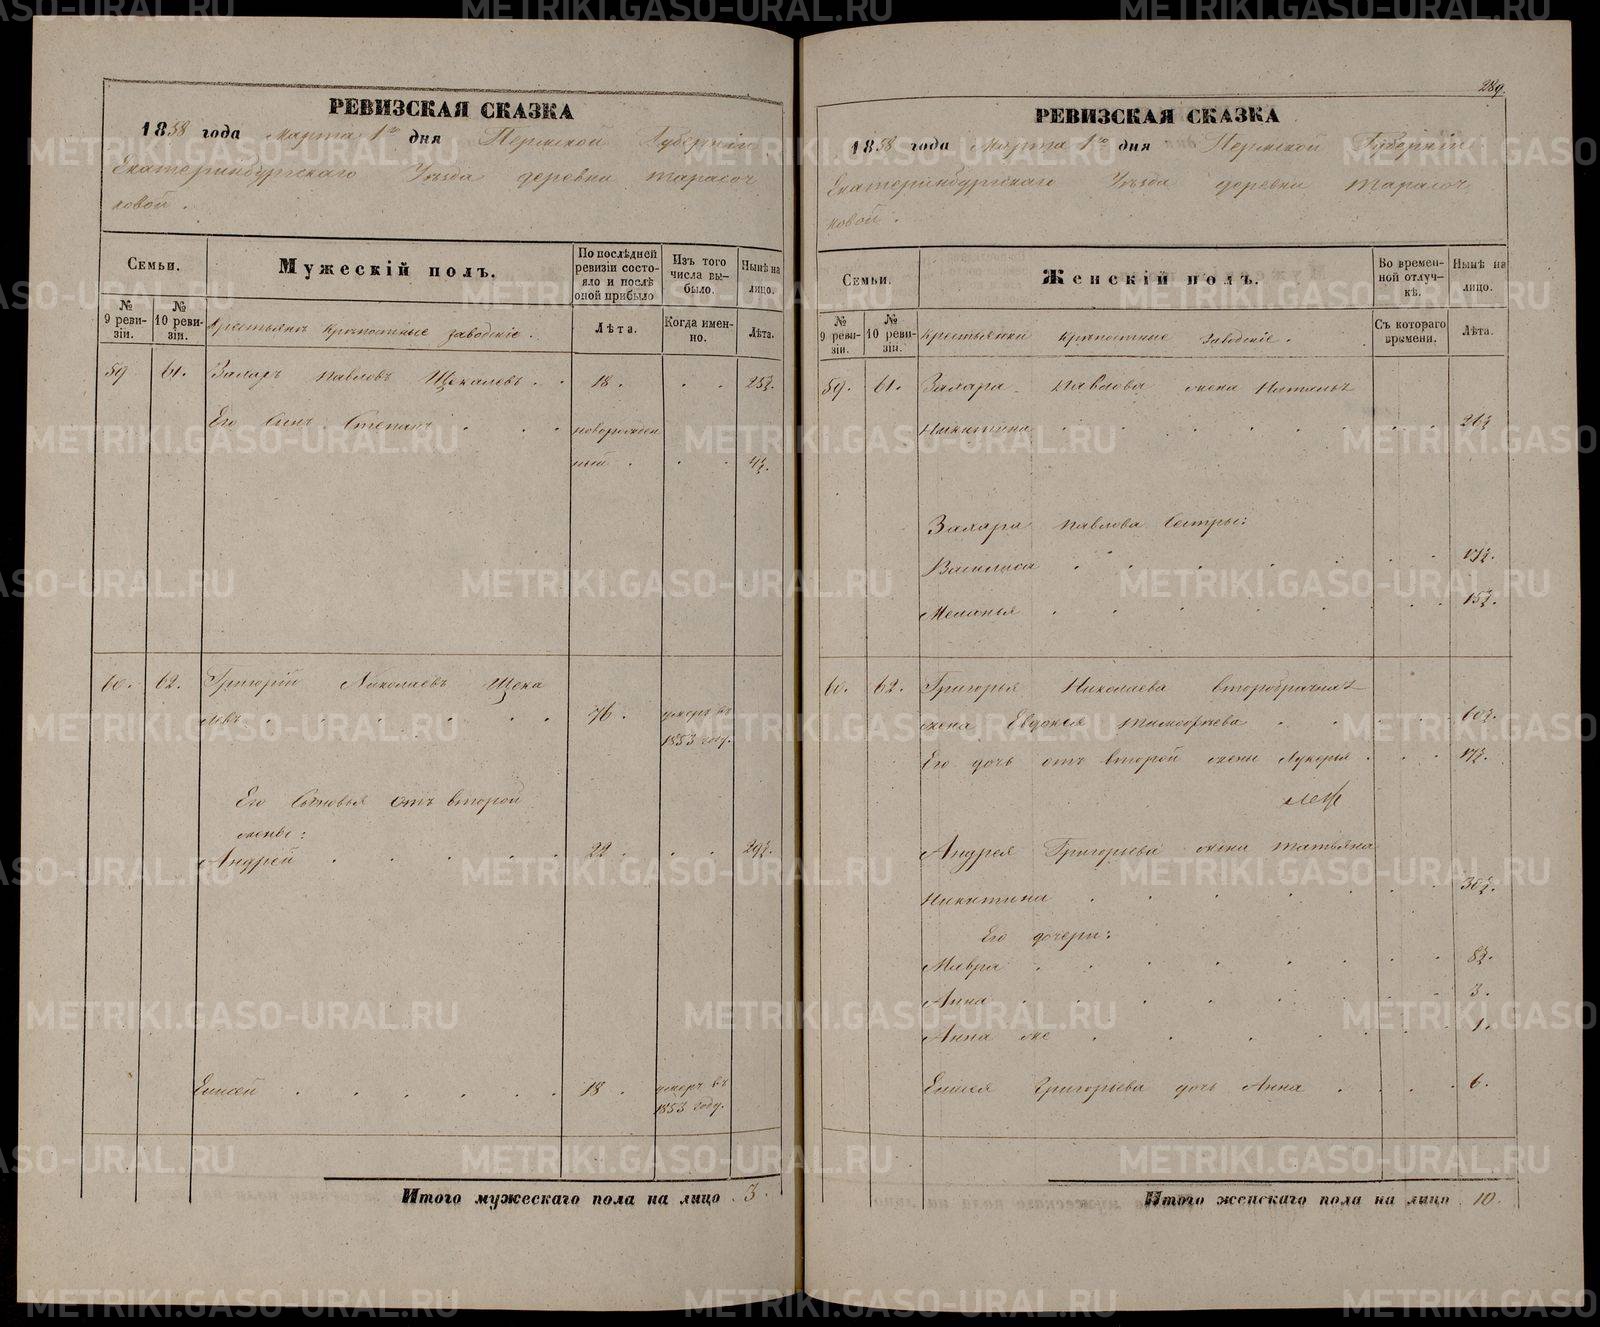 РЕВИЗСКАЯ СКАЗКА
1858 года Марта 1го дня Пермской Губерніи
Екатеринбургскаго Уѣзда деревни Тарасоч
ковой.
Семьи.
Мужескій полъ.
По послѣдней ревизіи состояло и послѣ оной прибыло
Изъ того числа выбыло.
Нынѣ на лицо.
№ 9 ревизіи.
№ 10 ревизіи.
Крестьянъ крѣпостные заводскіе.
Лѣта.
Когда именно.
Лѣта.
59 61. Захаръ Павловъ Щекалевъ . . 18. . . 25½.
Его Сынъ Степанъ . . . новорожден
ный . . . 4½.
60. 62. Григорій Николаевъ Щека
левъ . . . . . . 76. умеръ въ
1853 году.
Его Сыновья отъ второй
жены:
Андрей . . . . . 22. . . 29½.
Елисей . . . . . . 18. умеръ въ
1853 году.
Итого мужескаго пола на лицо 3.
289.
РЕВИЗСКАЯ СКАЗКА
1858 года Марта 1го дня Пермской Губерніи
Екатеринбургскаго Уѣзда деревни Тарасоч
ковой.
Семьи.
Женскій полъ.
Во временной отлучкѣ.
Нынѣ на лицо.
№ 9 ревизіи.
№ 10 ревизіи.
Крестьянки крѣпостные заводскіе.
Съ котораго времени.
Лѣта.
59. 61. Захара Павлова жена Наталья
Никитина . . . . . . . 26½
Захара Павлова Сестры:
Василиса . . . . . . . 17½.
Меланья . . . . . . . 15½.
60. 62. Григорья Николаева второбрачная
жена Евдокея Тимофѣева . . . . 60½.
Его дочь отъ второй жены Лукерья . . . 17½.
Андрея Григорьева жена Татьяна
Никитина . . . . . . . 30½.
Его дочери:
Мавра . . . . . . . 8½.
Анна . . . . . . . 3.
Анна же . . . . . . 1.
Елисея Григорьева дочь Анна . . . . 6.
Итого женскаго пола на лицо 10.
METRIKI.GASO-URAL.RU